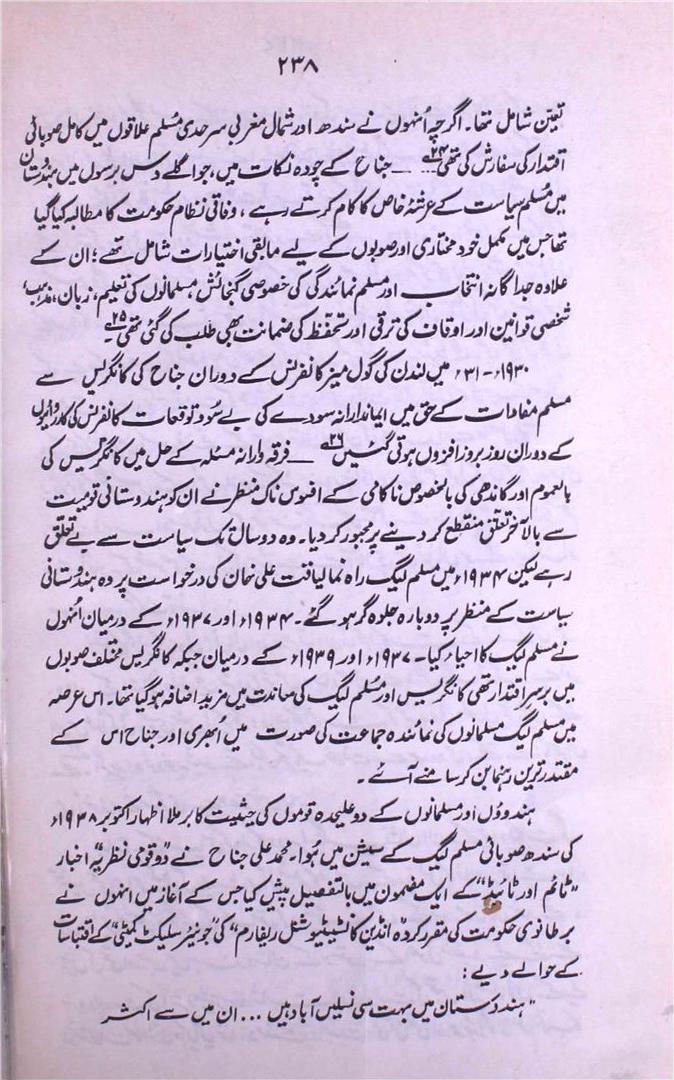 ۲۳۸
تعیّن شامل تھا۔ اگرچہ اُنہوں نے سندھ اور شمال مغربی سرحدی مُسلم علاقوں میں کامل صوبائی
اقتدار کی سفارش کی تھی۲۴؎ ـــ جناح کے چودہ نکات میں، جو اگلے دس برسوں میں ہندوستان
میں مُسلم سیاست کے عرشۂ خاص کا کام کرتے رہے ، وفاقی نظام حکومت کا مطالبہ کیا گیا
تھا جس میں مکمل خود مختاری اور صوبوں کے لیے مابقی اختیارات شامل تھے؛ ان کے
علاوہ جداگانہ انتخاب اور مسلم نمائندگی کی خصوصی گنجائش مسلمانوں کی تعلیم، زبان، مذہب،
شخصی قوانین اور اوقاف کی ترقی اور تحفّظ کی ضمانت بھی طلب کی گئی تھی۲۵؎۔
۱۹۳۰ء-۳۱ء میں لندن کی گول میز کانفرنس کے دوران جناح کی کانگریس سے
مسلم مفادات کے حق میں ایماندارانہ سودے کی بے سُود توقعات کانفرنس کی کارروائیوں
کے دوران روز بروز افزوں ہوتی گئیں۲۶؎ ـــ فرقہ وارانہ مسئلہ کے حل میں کانگریس کی
بالعموم اور گاندھی کی بالخصوص ناکامی کے افسوس ناک منظر نے ان کو ہندوستانی قومیت
سے بالآخر تعلّق منقطع کر دینے پر مجبور کر دیا۔ وہ دو سال تک سیاست سے بے تعلق
رہے لیکن ۱۹۳۴ء میں مسلم لیگ راہ نما لیاقت علی خان کی درخواست پر وہ ہندوستانی
سیاست کے منظر پر دوبارہ جلوہ گر ہو گئے۔ ۱۹۳۴ء اور ۱۹۳۷ء کے درمیان اُنہوں
نے مسلم لیگ کا احیاء کیا۔ ۱۹۳۷ء اور ۱۹۳۹ء کے درمیان جبکہ کانگریس مختلف صوبوں
میں برسرِ اقتدار تھی کانگریس اور مُسلم لیگ کی معاندت میں مزید اضافہ ہو گیا تھا۔ اس عرصہ
میں مسلم لیگ مسلمانوں کی نمائندہ جماعت کی صورت میں اُبھری اور جناح اس کے
مقتدر ترین رہنما بن کر سامنے آئے۔
ہندوؤں اور مسلمانوں کے دو علیحدہ قوموں کی حیثیت کا برملا اظہار اکتوبر ۱۹۳۸ء
کی سندھ صوبائی مسلم لیگ کے سیشن میں ہُوا۔ محمد علی جناح نے "دو قومی نظریہ" اخبار
"ٹائم اور ٹائیڈ" کے ایک مضمون میں بالتفصیل پیش کیا جس کے آغاز میں انہوں نے
برطانوی حکومت کی مقرر کردہ "انڈین کانسٹیٹیوشنل ریفارم" کی "جوئنیٹر سلیکٹ کمیٹی" کے اقتباسات
کے حوالے دیے:
"ہندوستان میں بہت سی نسلیں آباد ہیں ... ان میں سے اکثر